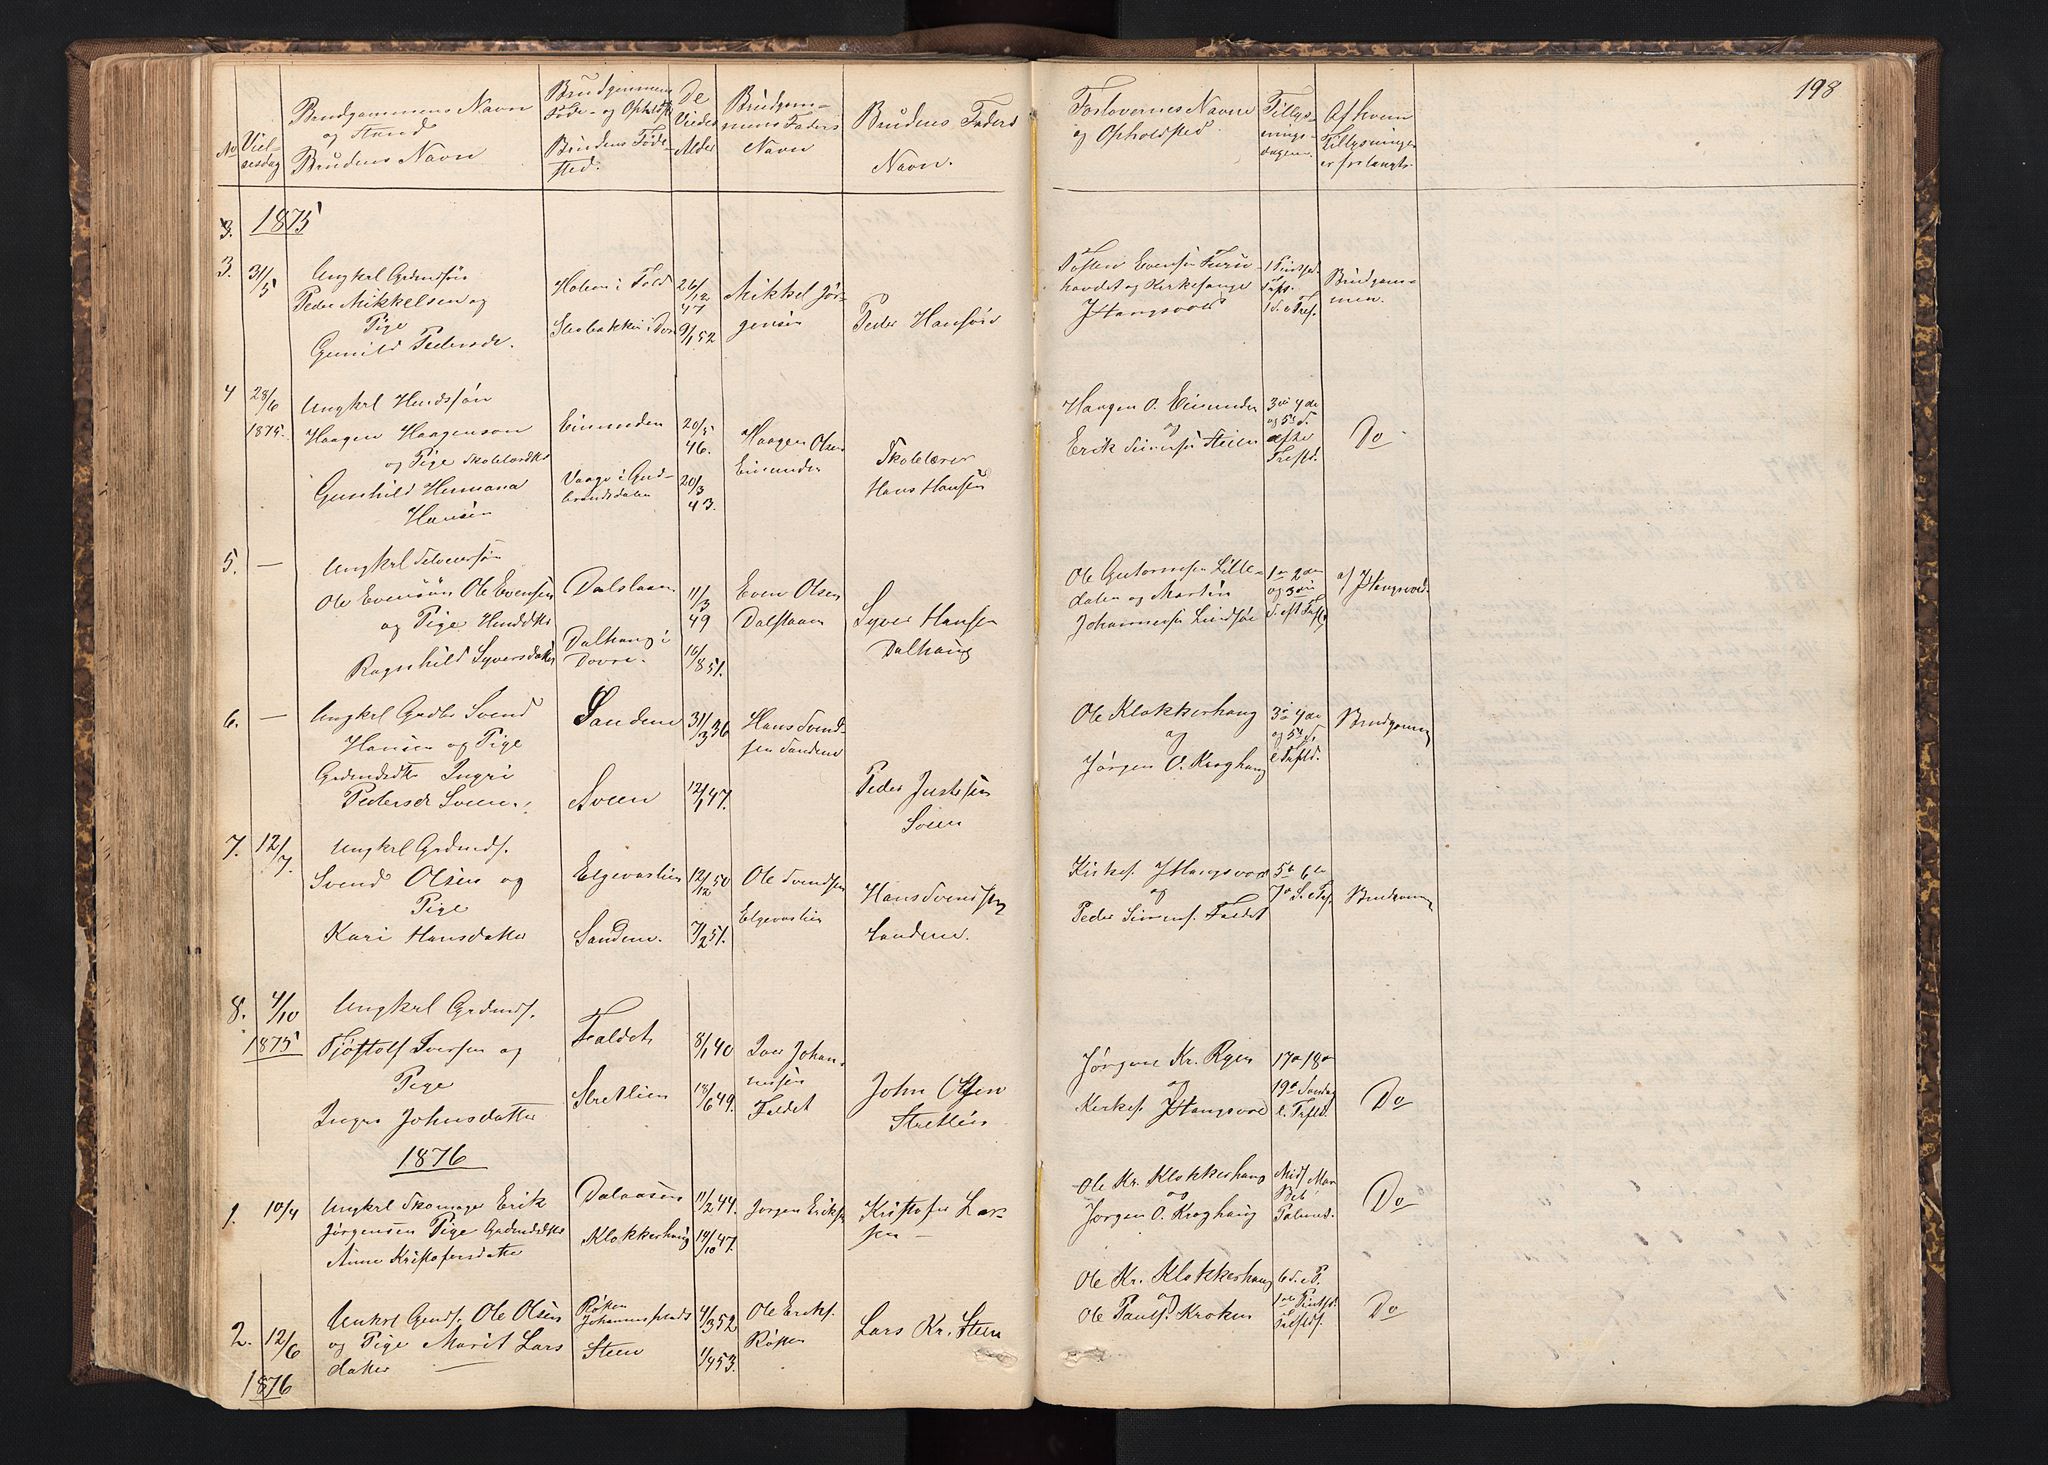 198
No Viel-sesdag
Brudgommens Navn
og Stand
Brudens Navn
Brudgommens
Føde- og Opholdst.
Brudens Føde-
sted.
De
Viedes
Alder
Brudgom-
mens Faders
Navn
Brudens Faders
Navn.
Forlovernes Navne
og Opholdsted
Tillys-
nings-
dagene.
Af hvem
Tillysningen
er forlangt.
3. 1875
3. 31/5
Ungkrl Grdmdsøn
Peder Mikkelsen og
Pige
Gunild Pedersdr.
26/12 47
9/1 52
Mikkel Jør-
gensen
Peder Hansøn
Tosten Evensen
og Kirkesanger
J Haugsvold
Brudgom-
men.
4 28/6
1875.
Ungkrl
Haagen Haagenson
og Pige
Gunhild
Hansen
Vaage i Gud-
brandsdalen
20/5 46.
20/3 43.
Haagen Olsen
Skolelærer
Hans Hansen
Haagen O.
og
Erik Simensen Steien
3die 4de
og 5te S.
efter
Trefld.
Do
5. —
Ungkrl
Ole Evensøn Ole Evensen
og Pige
Ragnhild Syversdatter
Dalslaaen
Dalhaug i
Dovre.
11/3 49
16/8 51.
Even Olsen
Dalslaaen
Syver Hansen
Dalhaug
Ole Guttormsen Lille-
dalen og Martin
Johannesen
1te 2den
og 3die
af J Haugsvold.
6. —
Ungkrl Grdbr Svend
Hansen og Pige
Ingri
Pedersdr Sveen.
Sandene
Sveen
31/3 36
12/1 47.
Hans Svend-
sen Sandene
Peder Justesen
Sveen
Ole Klokkerhaug
og
Jørgen O. Kroghaug
3die 4de
og 5te S.
Brudgommen
7. 12/7
Ungkrl Grdmds.
Svend Olsen og
Pige
Kari Hansdatter
Elgevaslien
Sandene.
12/12 50
7/2 51.
Ole Svendsen
Elgevaslien
Hans Svendsen
Sandene.
Kirkes. J Haugsvold
og
Peder Simens. Faldet
5te 6te
7de S. e Tref.
Brudgommen
8. 4/10
1875
Ungkrl Grdmds.
Tjøstolf Iversen og
Pige
Ingri Johnsdatter
Faldet
Stretlien
8/1 40
18/6 49.
Iver Johan-
nesen
Faldet
John Olsen
Stretlien
Jørgen Kr. Ryen
og
Kirkes. J Haugsvold
17de 18de
19de Søndag
e. Trefld.
Do
1876
1. 10/4
Ungkrl Skomager Erik
Jørgensen Pige
Anne Kristofersdatter
Dalaasen
Klokkerhaug
11/2 44.
14/10 47.
Jørgen Eriksen
Kristofer Lar-
sen —
Ole Kr. Klokkerhaug
og
Jørgen O. Kroghaug
Do
2. 12/6
1876
Unkrl Grds. Ole Olsen
og Pige Marit Lars
datter —
Røsten
Steen
4/3 52
1/4 53.
Ole Eriks.
Røsten
Lars Kr. Steen
Ole Kr. Klokkerhaug
og
Ole Pauls. Kroken
Do